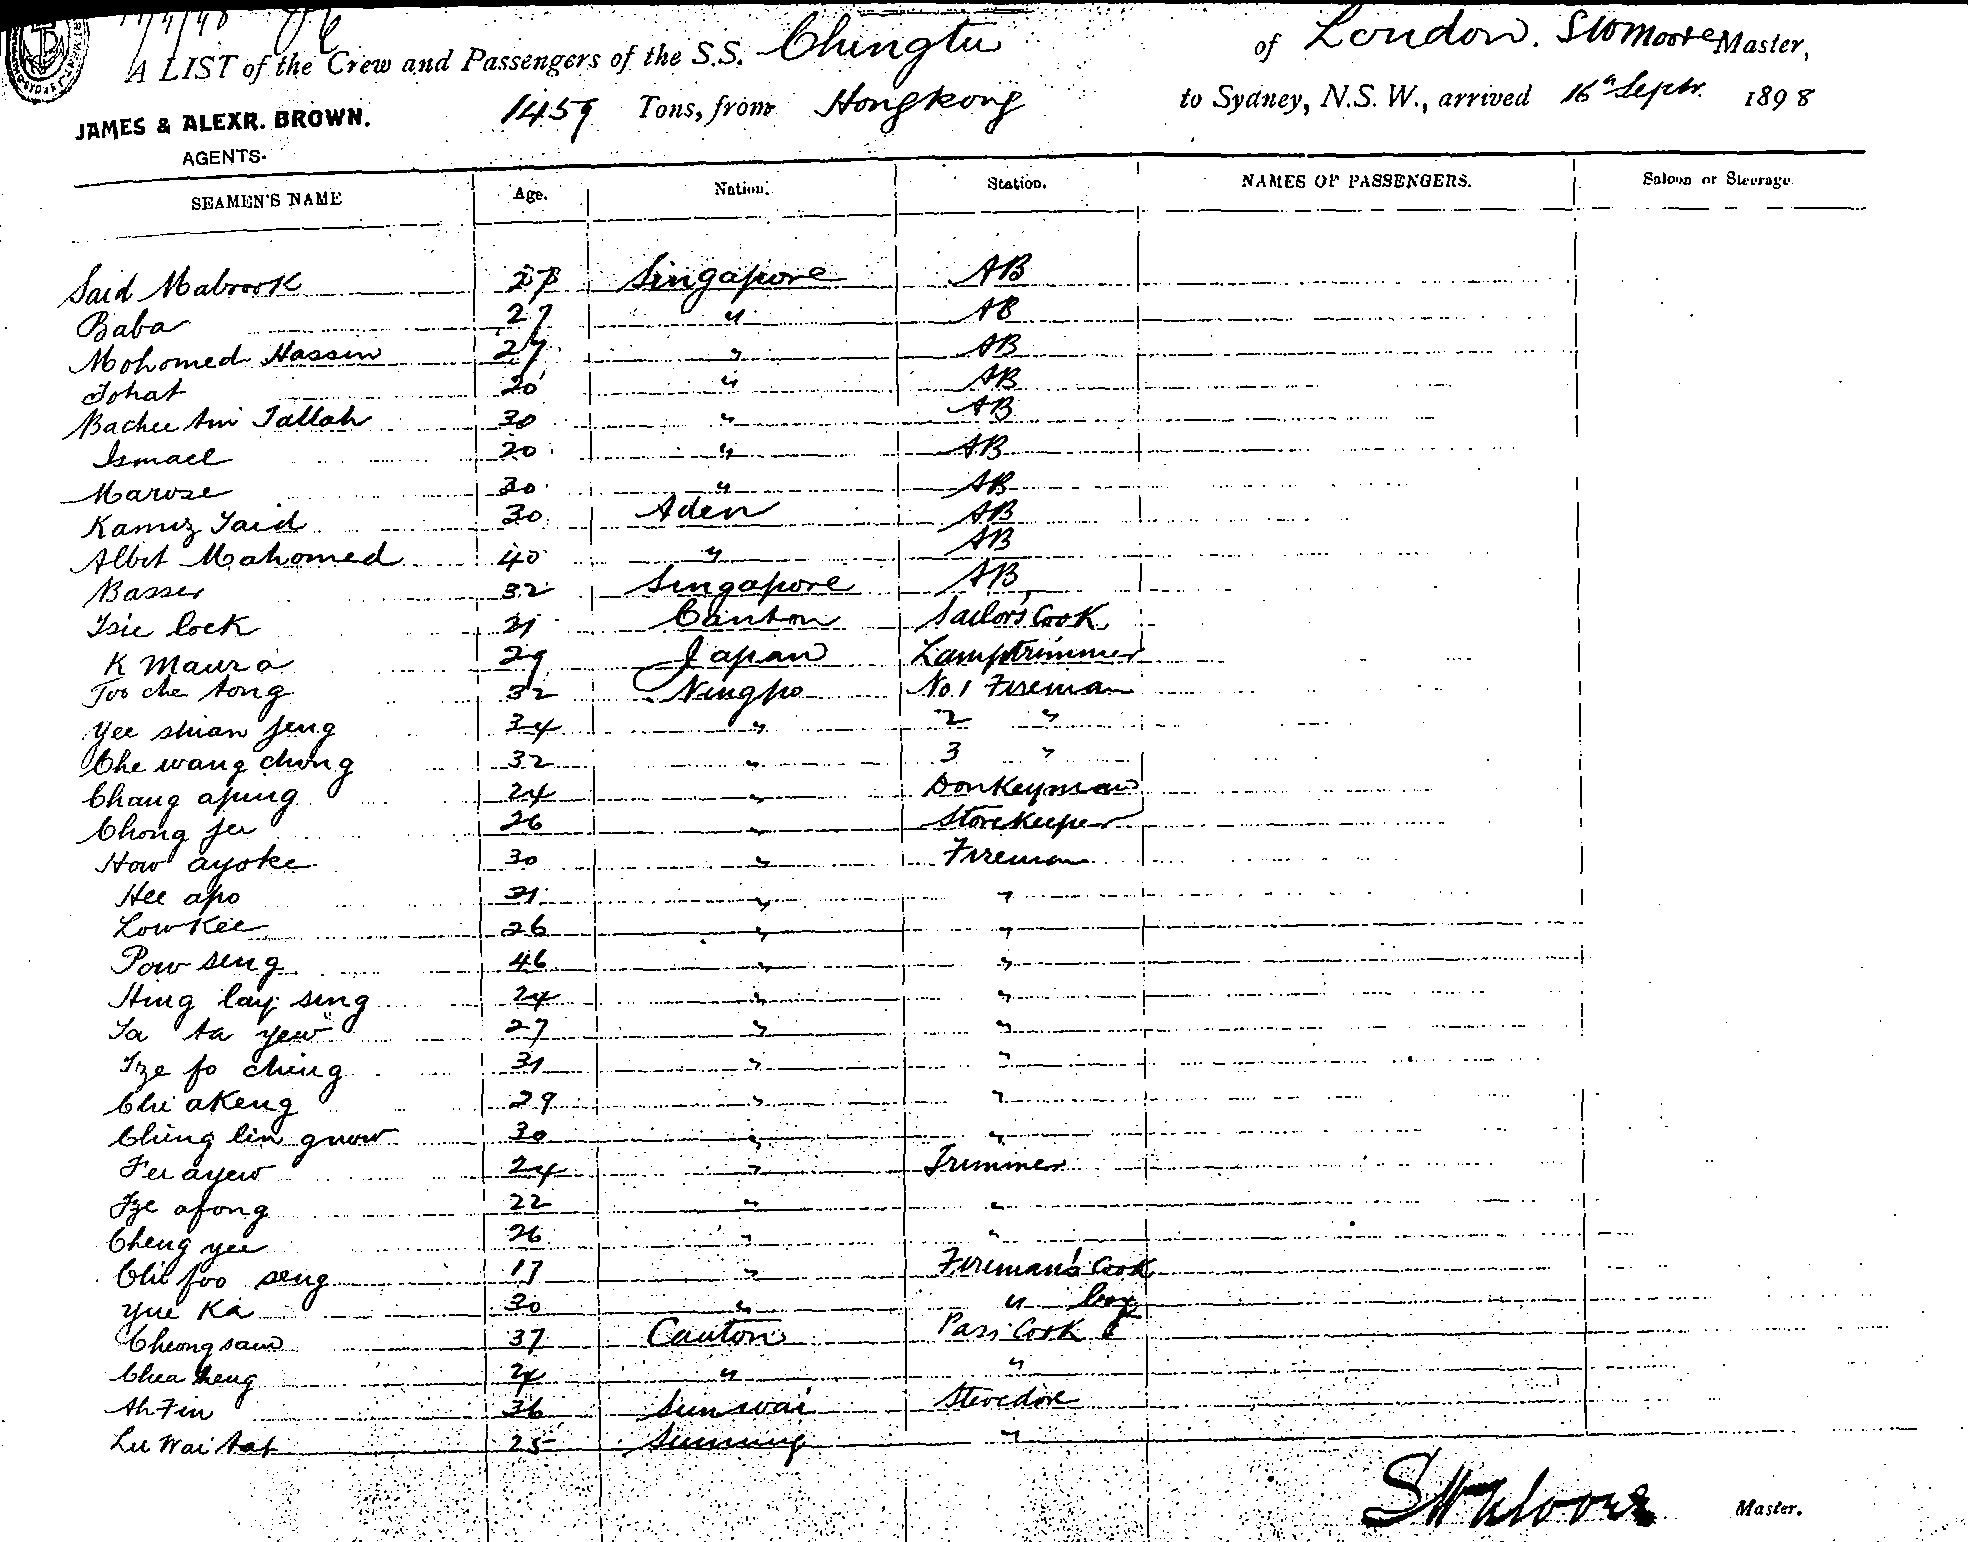 A LIST of the Crew and Passengers of the S.S. Chingtu of London. Moore Master,
JAMES & ALEXR. BROWN. 1459 Tons, from Hongkong to Sydney, N.S.W., arrived 16th Septr. 1898
AGENTS.
SEAMEN'S NAME Age. Nation. Station. NAMES OF PASSENGERS. Saloon or Steerage
Said Mabrook Singapore AB
Baba 27 " AB
Mohomed Hassin 27 " AB
Johat 20 " AB
Bachee Tallah 30 " AB
Ismael 20 " AB
Marose 30 " AB
Kamiz Said 30 Aden AB
Albit Mahomed 40 " AB
Basser 32 Singapore AB
Tsie lock 31 Canton Sailor's Cook
K Maura 29 Japan Lamptrimmer
Too che tong 32 Ningpo No 1 Fireman
Yee shian feng 34 " 2 "
Che wang chong 32 " 3 "
Chang apung 24 " Donkeyman
Chong fee 26 " Storekeeper
How ayoke 30 " Fireman
Hee apo 31 " "
Low Kee 26 " "
Pow seng 46 " "
Hing lay sing 24 " "
Sa ta yew 27 " "
Tze fo ching 31 " "
Chi akeng 29 " "
Ching lin gnow 30 " "
Fei ayew 24 " Trimmer
Tze afong 22 " "
Cheng yee 26 " "
Chi foo seng 17 " Fireman's Cook
Yue Ka 30 " " boy
Cheong sam 37 Canton Pass Cook
Chea heng 24 " "
Ah Fin 36 Sunwai Stevedore
Lu Wai tat 25 Sunning "
Master.